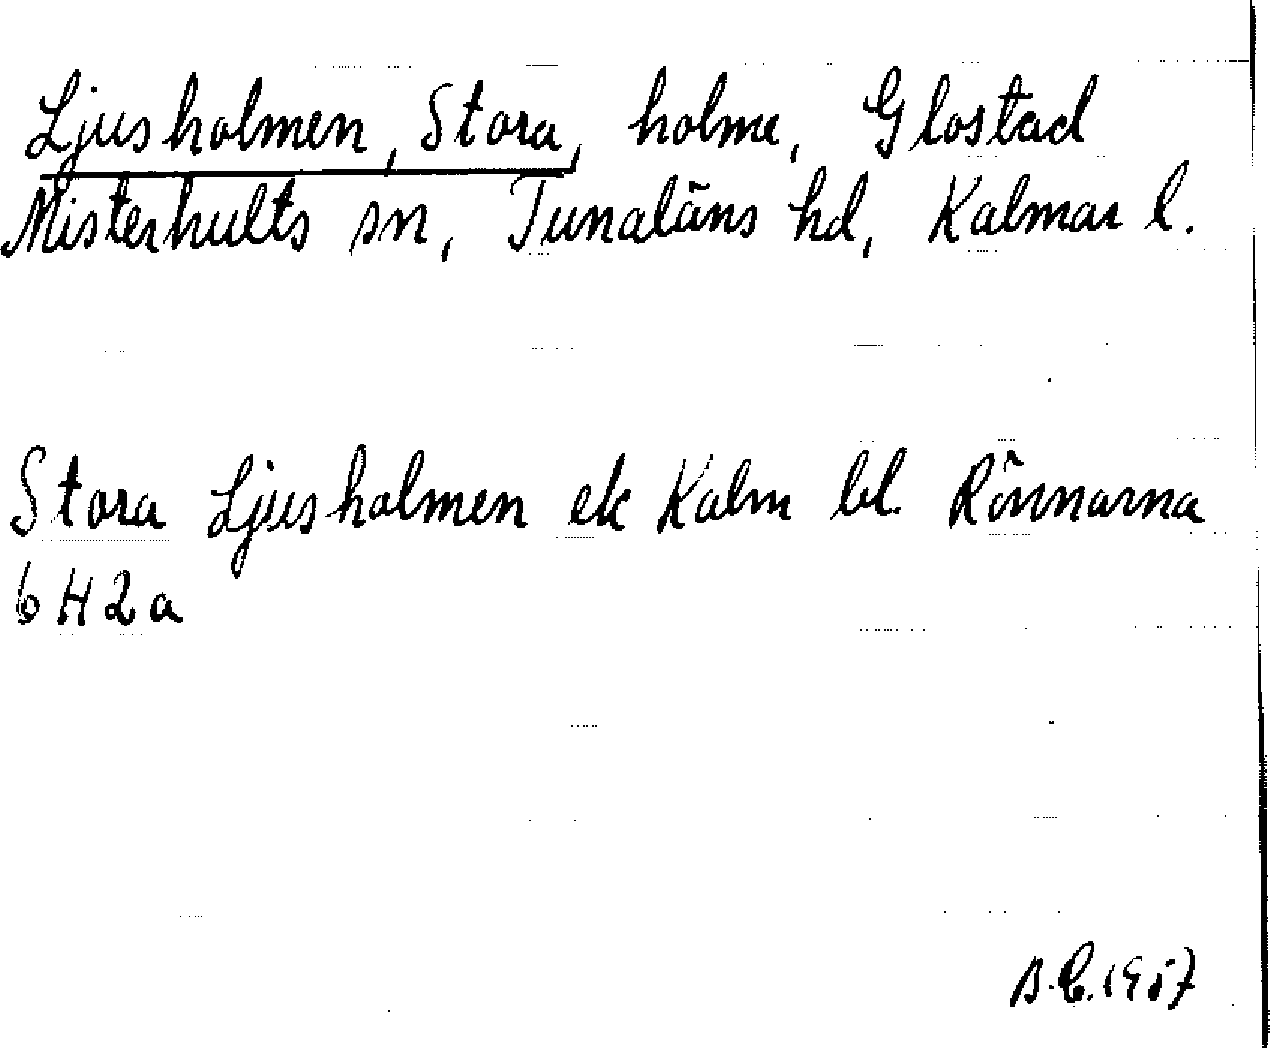 Ljusholmen, Stora, holme, Glostad
Misterhults sn, Tunaläns hd, Kalmar l.
Stora Ljusholmen ek Kalm bl. Rönnarna
6 H 2 a
B.C. 1957